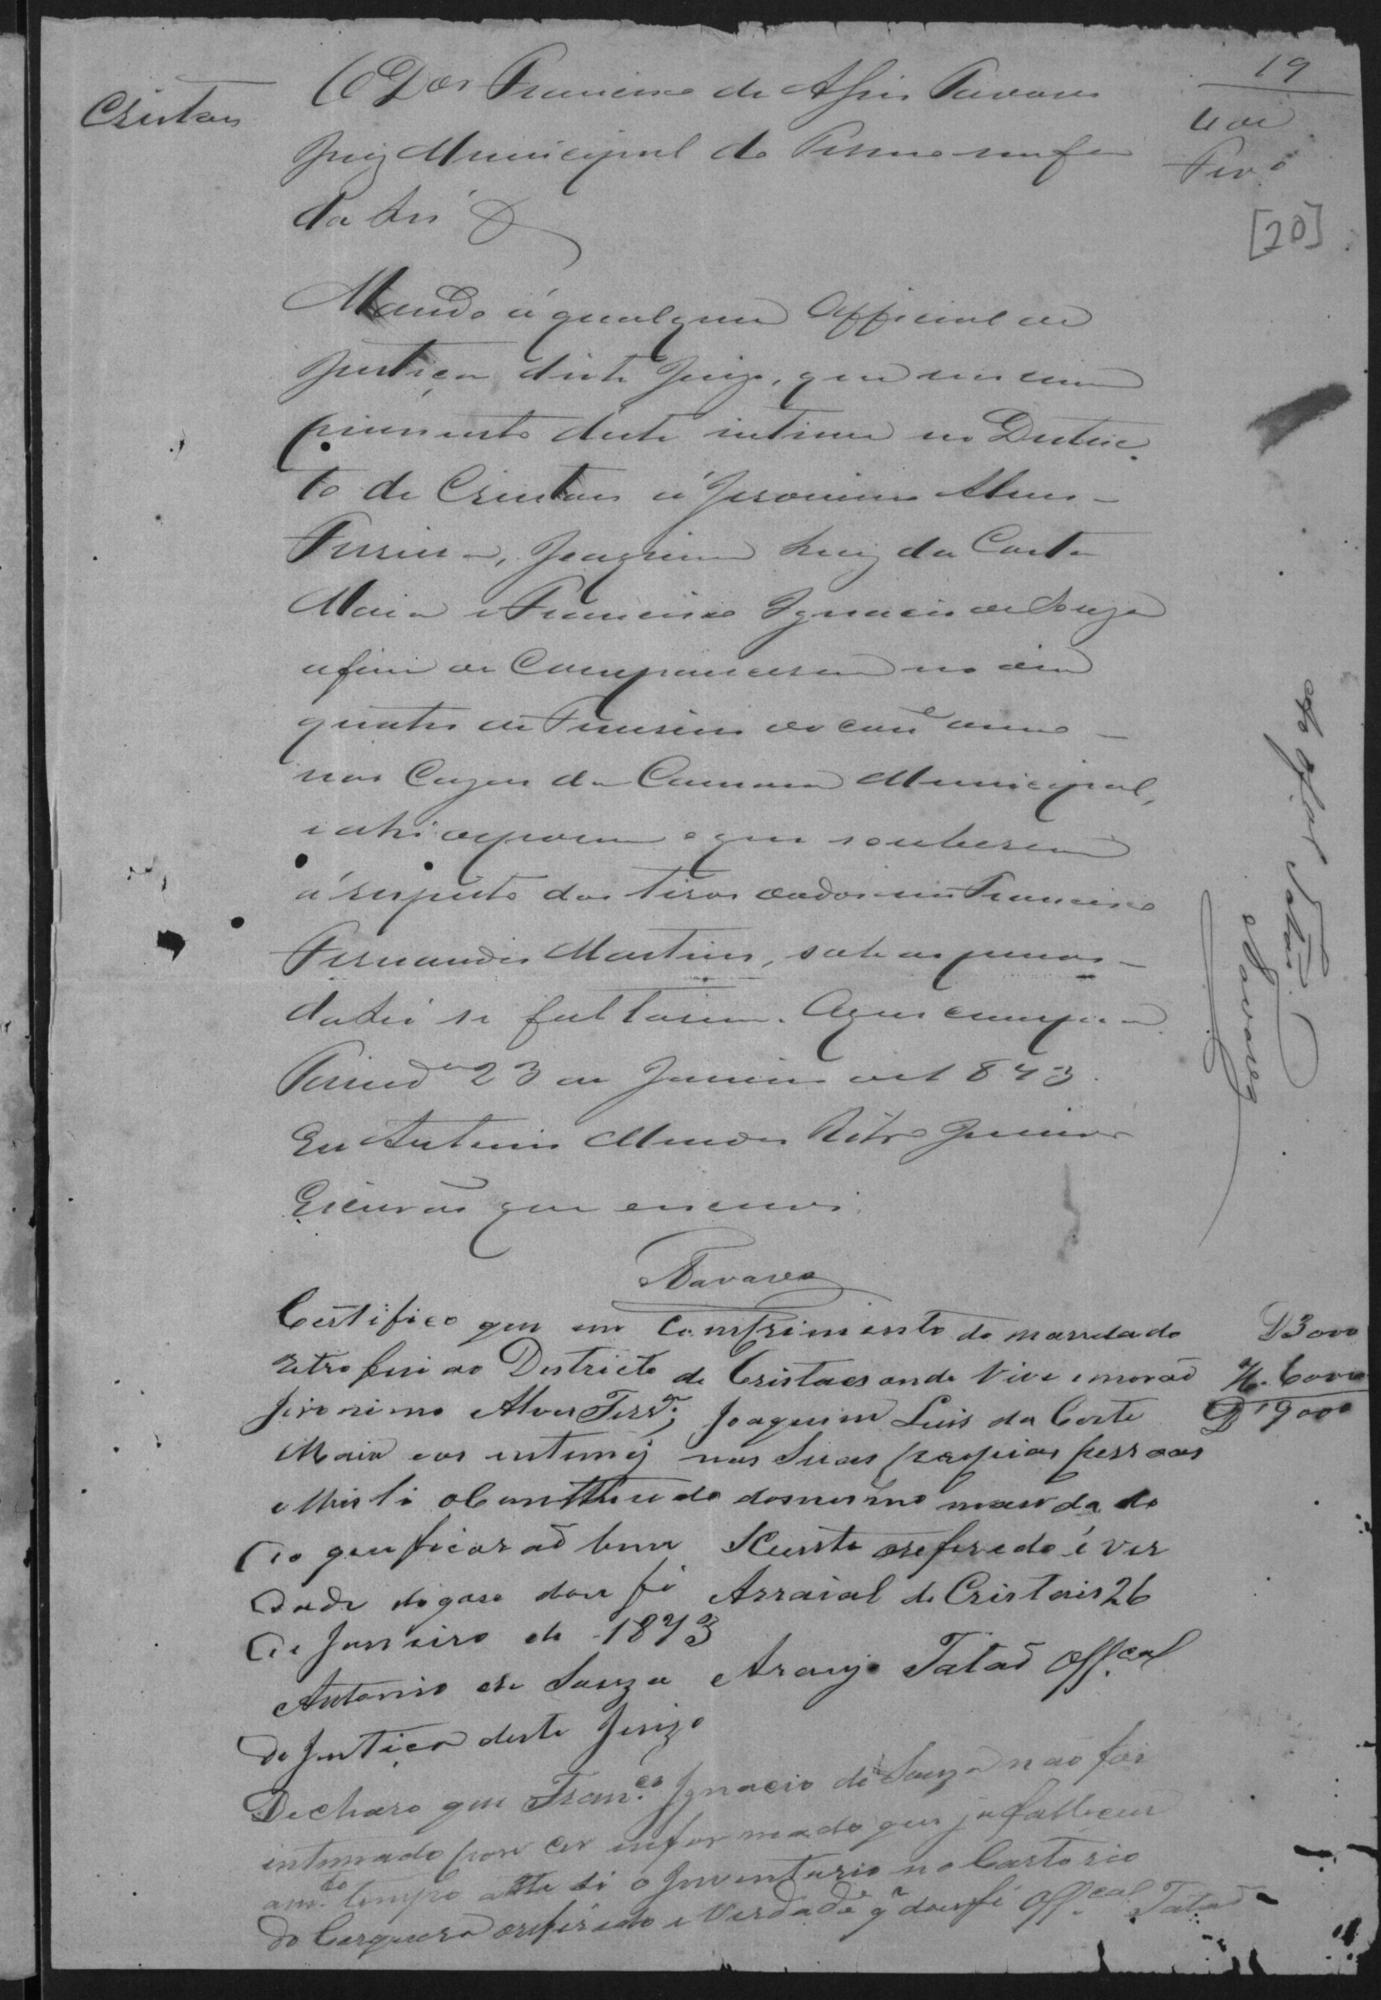 19
4 de
Fevº
[20]
Cristaes
O Dor Francisco de Assis Tavares
Juiz Municipal do Termo na fra
da Lei &
Mando a qualquer Official de
Justiça deste Juizo, que em cum
primento deste intime no Distric
to de Cristaes á Jeronimo Alves
Ferreira, Joaquim Luiz da Costa
Maia e Francisco Ignacio de Souza
afim de comparecerem no dia
quatro de Fevereiro do corre anno
nas Cazas da Camara Municipal,
e ahi deporem o que souberem
á respeito dos tiros dados em Francisco
Fernandes Martins, sob as penas
da Lei se faltarem. O que cumpra
23 de Janeiro de 1873.
Eu Antonio Mendes Junior
Escrivão que escrevi.
Tavares
Certifico que em comprimento do mandado
retro fui ao Districto de Cristaes onde vive e morão
Jironimo Alves Ferra, Joaquim Luis da Costa
Maia e os intimej nas suas propias pessoas
e lhis li o Conttheudo do mesmo mandado
do que ficarão bem Sciente o referido é ver
dade do que dou fé Arraial de Cristais 26
de Janeiro de 1873
Antonio de Souza Araujo Tatão Offcal
de Justiça deste Juizo
Decharo que Franco Ignacio de Souza não foi
intimado por ser informado que ja falleceu
a mto tempo o Inventario no Cartorio
do Cerqueira o referido e Verdade q dou fé Offcal Tatão
D 3000
6000
9000
Tatão
Tavares